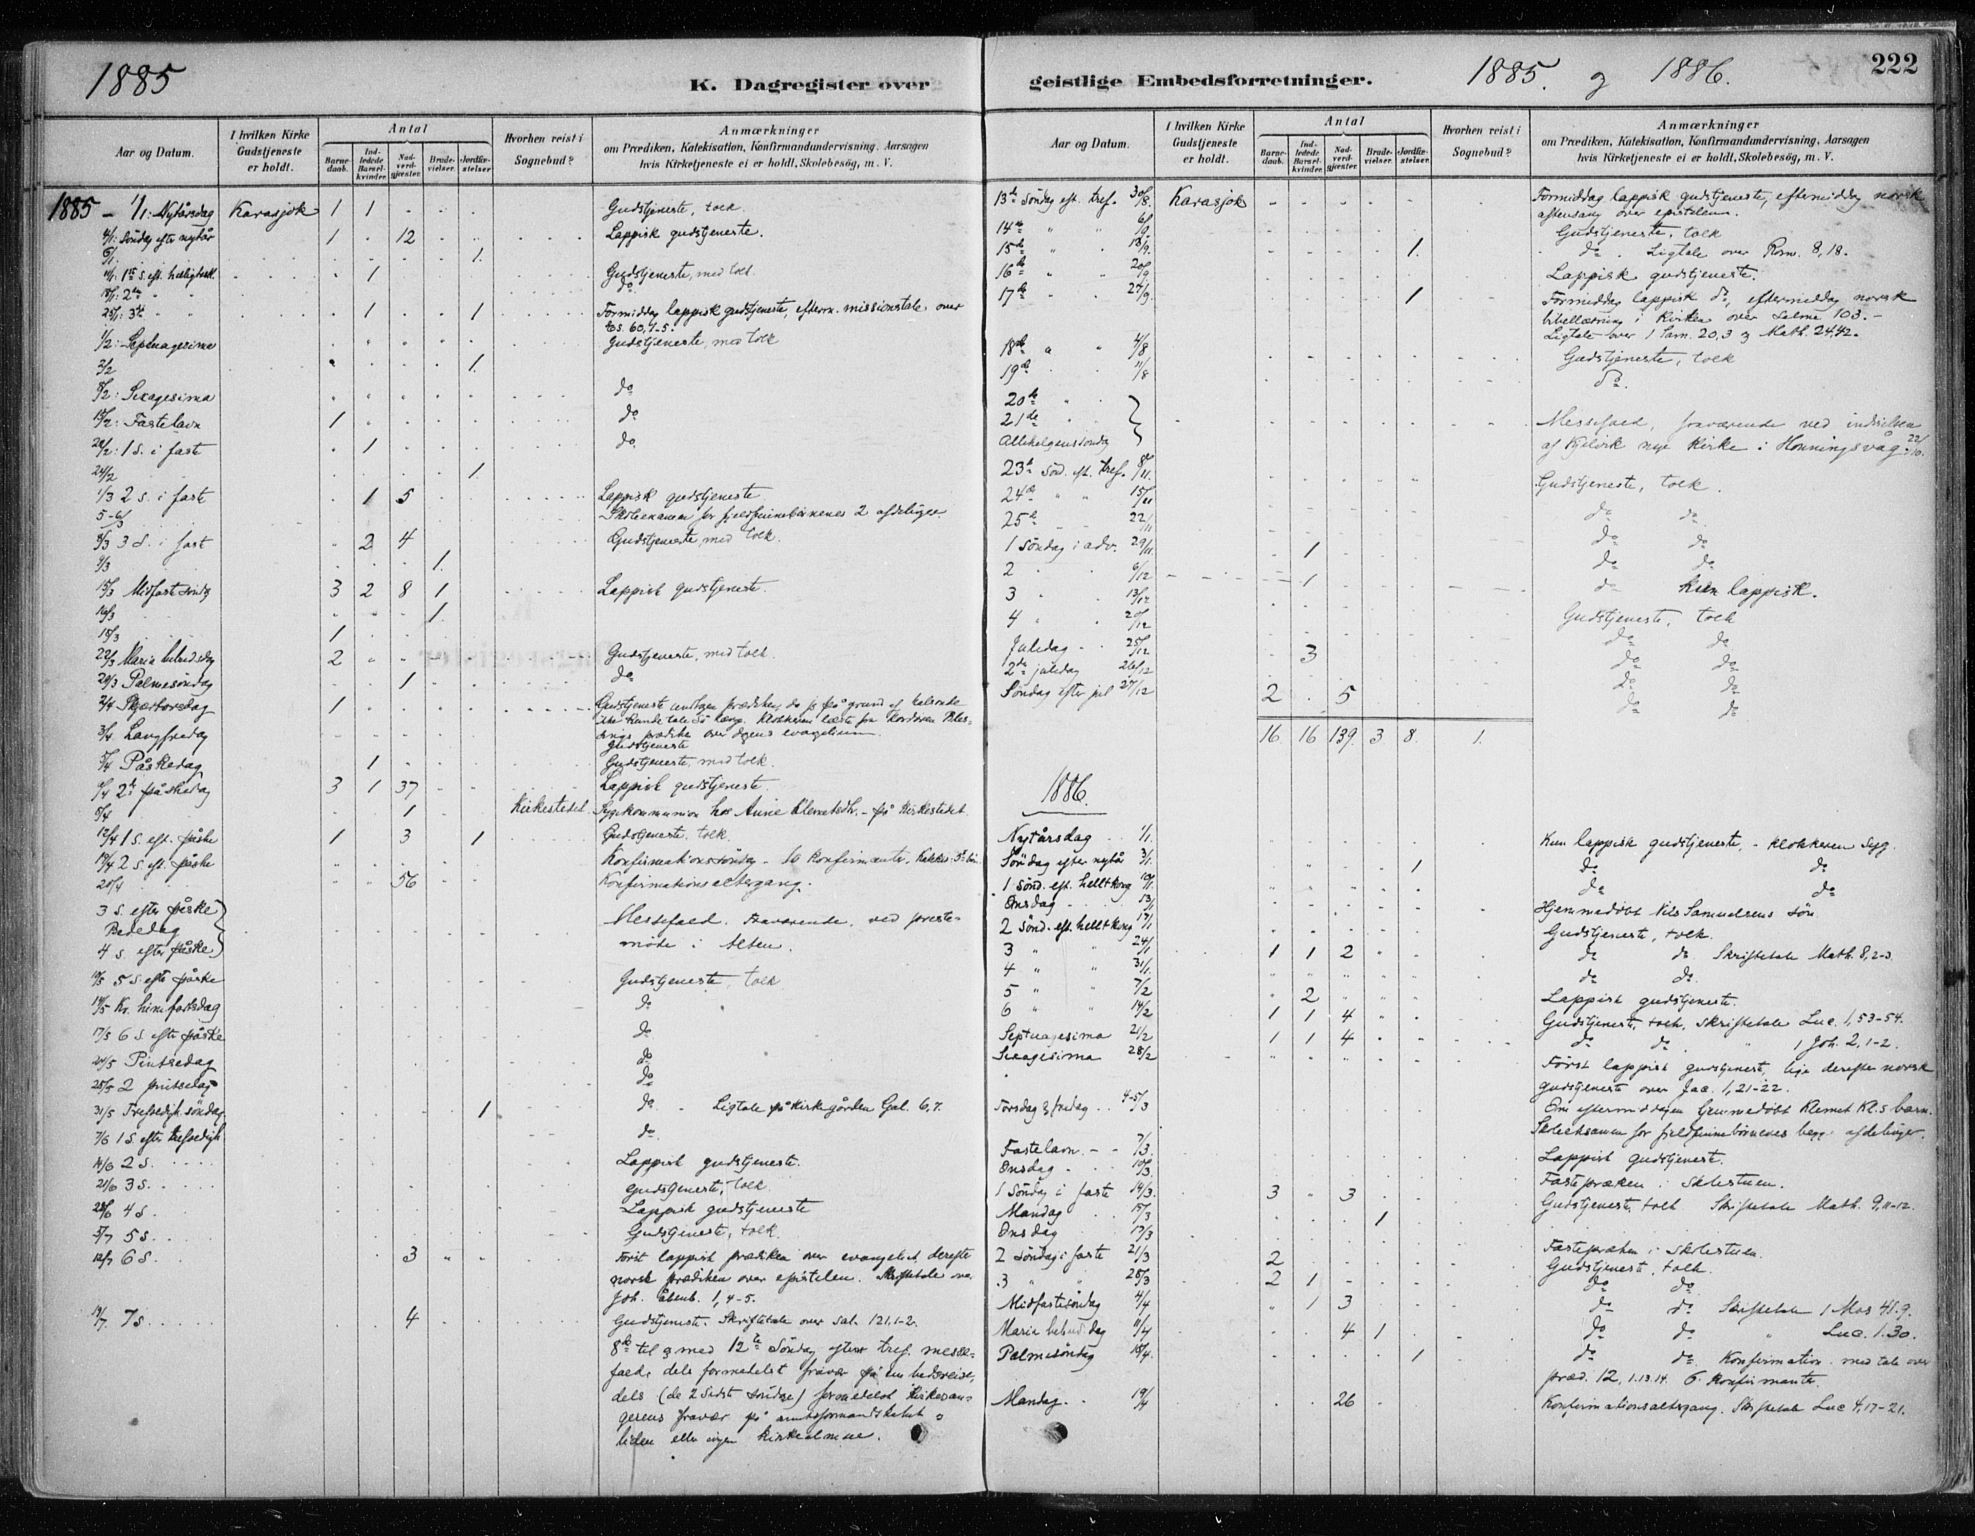 1885
K. Dagregister over
Aar og Datum.
I hvilken Kirke Gudstjeneste er holdt.
Antal
Barnedaab.
Indledede Barselkvinder.
Nadverdgjester.
Brudevielser.
Jordfæstelser.
Hvorhen reist i Sognebud?
Anmærkninger
om Prædiken, Katekisation, Konfirmandundervisning, Aarsagen
hvis Kirketjeneste ei er holdt, Skolebesög, m. V.
1885 - 1/1: Nytårsdag Karasjok 1 1 Gudstjeneste, tolk.
4/1: Söndag efter nytår 1 12 Lappisk gudstjeneste.
6/1 1.
11/1: 1ste S. eft. 1 Gudstjeneste, med tolk.
18/1: 2den do
25/1: 3de 1 1 Formiddag lappisk gudstjeneste, efterm. missionstale over
Es. 60, 1-5.
1/2: Septuagesima Gudstjeneste, med tolk
2/2 1.
8/2: Sexagesima do
15/2: Fastelavn 1 do
22/2: 1 S. i faste 1 do.
24/2 1.
1/3 2 S. i faste 1 5 Lappisk gudstjeneste
5-6/3 Skoleexamen for fjeldfinnebörnenes 2 afdelinger.
8/3 3 S. i faste 2 4 Gudstjeneste, med tolk.
9/3 1.
15/3 Midfastesöndag 3 2 8 1 Lappisk gudstjeneste.
16/3 1.
1
22/3 Maria bebud.dag 2 Gudstjeneste, med tolk.
29/3 Palmesöndag 1 do
2/4 Skjærtorsdag 1 Gudstjeneste uden prædiken, da jeg på grund af
ikke kunde tale så længe. Klokkeren læste fra
prædiken over dagens evangelium.
3/4 Langfredag Gudstjeneste
5/4 Påskedag 1 Gudstjeneste, med tolk.
6/4 2den påskedag 3 1 37 Lappisk gudstjeneste.
8/4 1 Kirkestedet. Sygekommunion hos Anne Klemetsdtr. - på Kirkestedet.
12/4 1 S. eft. påske 1 3 1 Gudstjeneste, tolk.
19/4 2 S. eft. påske Konfirmationssöndag - 16 konfirmanter.
20/4 56 Konfirmationsaltergang.
3 S. efter påske
Bededag Messefald. Fraværende ved præste-
4 S. efter påske möde i Alten.
10/5 5 S. efter påske Gudstjeneste, tolk
14/5 Kr. himmelfartsdag do
17/5 6 S. efter påske do
24/5 Pintsedag do
25/5 2 pintsedag do
31/5 Trefoldigh. söndag 1 do Ligtale på kirkegården Gal. 6,7.
7/6 1 S. efter trefoldigh. do
14/6 2 S. Lappisk gudstjeneste.
21/6 3 S. Gudstjeneste, tolk
28/6 4 S. Lappisk gudstjeneste
5/7 5 S. Gudstjeneste, tolk.
12/7 6 S. 3 Först lappisk prædiken over evangeliet, derefter
norsk prædiken over epistelen. Skriftetale over
Joh. åbenb. 1, 4-5.
19/7 7 S 4 Gudstjeneste. Skriftetale over Sal. 121.1-2.
8de til og med 12te Söndag efter tref. messe-
fald, dels formedelst fravær på embedsreise,
dels (de 2 sidste söndage) formedelst kirkesan-
gerens fravær på amtsformandskabet og
liden eller ingen kirkealmue.
geistlige Embedsforretninger.
1885. og 1886.
222
Aar og Datum.
I hvilken Kirke Gudstjeneste er holdt.
Antal
Barnedaab.
Indledede Barselkvinder.
Nadverdgjester.
Brudevielser.
Jordfæstelser.
Hvorhen reist i Sognebud?
Anmærkninger
om Prædiken, Katekisation, Konfirmandundervisning, Aarsagen
hvis Kirketjeneste ei er holdt, Skolebesög, m. V.
13de Söndag eft. tref. 30/8. Karasjok Formiddag lappisk gudstjeneste, eftermiddag norsk
aftensang over epistelen.
14de 6/9 Gudstjeneste, tolk
15de 13/9. 1. do. Ligtale over Rom. 8, 18.
16de 20/9 Lappisk gudstjeneste.
17de 27/9. 1 Formiddag lappisk do, eftermiddag norsk
bibellæsning i kirken over Salme 103. -
Ligtale over 1 Sam. 20,3 og Math. 24,42.
18de 4/8 Gudstjeneste, tolk
19de 11/8 do.
20de
21de Messefald, fraværende ved indvielsen
Allehelgenssöndag af Kjelvik nye kirke i Honningsvåg 22/10.
23de Sönd. eft. tref. 8/11. Gudstjeneste, tolk.
24de 15/11 do do
25de 22/11 do do
1 Söndag i adv. 29/11. 1 do do
2 6/12 1 do kun lappisk.
3 13/12 Gudstjeneste, tolk
4 20/12 do do
Juledag 25/12 3 do do
2den juledag 26/12 do do
Söndag efter jul 27/12 2 5 do do
16 16 139. 3 8. 1.
1886.
Nytårsdag 1/1. Kun lappisk gudstjeneste, - klokkeren syg.
Söndag efter nytår 3/1. 1 do do
1 Sönd. eft. hell3kong 10/1. do do
Onsdag 13/1 Hjemmedöbt Nils Samuelsens sön.
2 Sönd. eft. hell3kong 17/1 Gudstjeneste, tolk.
3 24/1 1 1 2 do do Skriftetale Math. 8,2-3
4 31/1. do do.
5 7/2 2 Lappisk gudstjeneste.
6 14/2 1 1 4 Gudstjeneste, tolk, Skriftetale Luc. 1, 53-54.
Septuagesima 21/2 1 1 4 do do. " 1 Joh. 2, 1-2.
Sexagesima 28/2 Först lappisk gudstjeneste, lige derefter norsk
gudstjeneste over Jac. 1, 21-22.
Om eftermiddagen hjemmedöbt Klemet Kl.s barn.
Torsdag & fredag 4-5/3 Skoleexamen for fjeldfinnebörnenes begge afdelinger.
Fastelavn 7/3. Lappisk gudstjeneste.
Onsdag 10/3 Fasteprædiken i skolestuen.
1 Söndag i faste 14/3. 3 3 Gudstjeneste, tolk Skriftetale Math. 9,11-12.
Mandag 15/3 1
Onsdag 17/3 Fasteprædiken i skolestuen.
2 Söndag i faste 21/3 2 Gudstjeneste, tolk.
3 28/3 2 1 do do
Midfastesöndag 4/4 1 3 do do Skriftetale 1 Mos
Maria bebud.dag 11/4 4 1 do do " Luc. 1.30.
Palmesöndag 18/4. 1 do do Konfirmation med tale over
præd. 12, 1.13.14. 6 konfirmanter.
Mandag 19/4 26 Konfirmationsaltergang. Skriftetale Luc 4, 17-21.